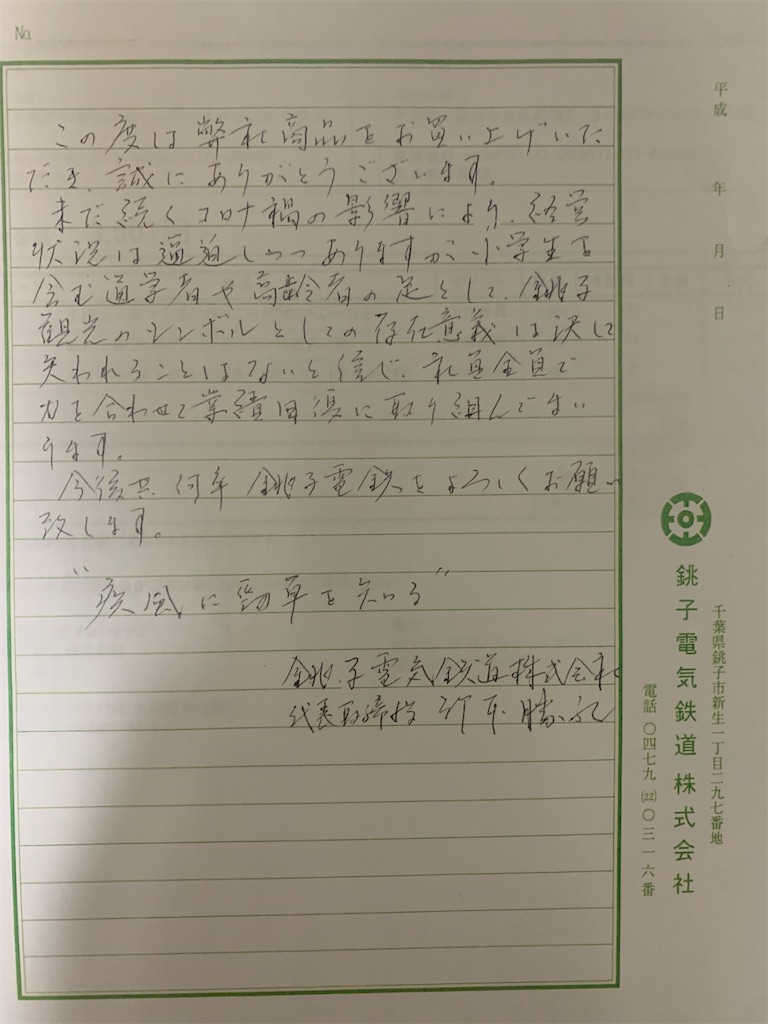 No.
この度は弊社商品をお買い上げいた
だき、誠にありがとうございます。
未だ続くコロナ禍の影響により、経営
状況は逼迫しつつありますが、小学生を
含む通学者や高齢者の足として、銚子
観光のシンボルとしての存在意義は決して
失われることはないと信じ、社員全員で
力を合わせて業績回復に取り組んでまい
ります。
今後共、何卒銚子電鉄をよろしくお願い
致します。
"疾風に勁草を知る"
銚子電気鉄道株式会社
代表取締役 竹本勝紀
平成　年　月　日
千葉県銚子市新生一丁目二九七番地
銚子電気鉄道株式会社
電話〇四七九(22)〇三一六番